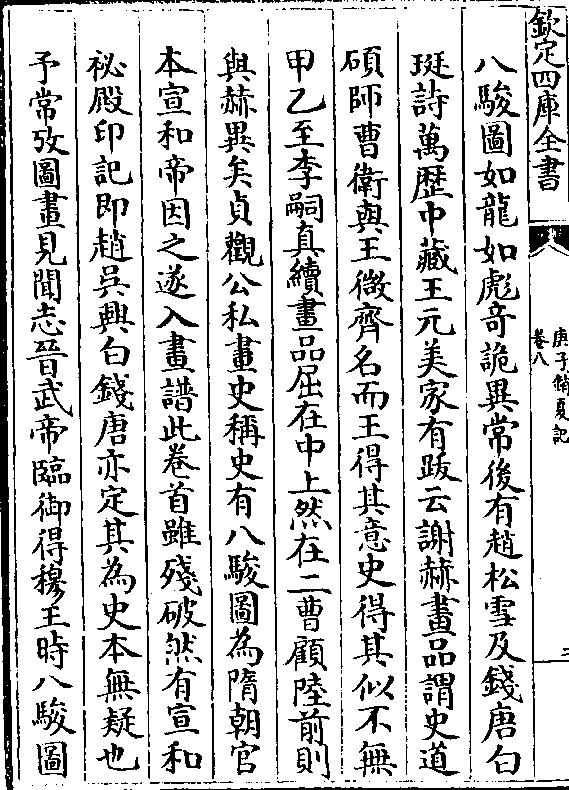 欽定四庫全書
庚子銷夏記
卷八
三
八駿圖如龍如彪奇詭異常後有趙松雪及錢唐白
珽詩萬歴中藏王元美家有跋云謝赫畫品謂史道
碩師曹衛與王微齊名而王得其意史得其似不無
甲乙至李嗣真續畫品屈在中上然在二曹顧陸前則
與赫異矣貞觀公私畫史稱史有八駿圖為隋朝官
本宣和帝因之遂入畫譜此卷首雖殘破然有宣和
祕殿印記即趙吳興白錢唐亦定其為史本無疑也
予常攷圖畫見聞志晉武帝臨御得穆王時八駿圖